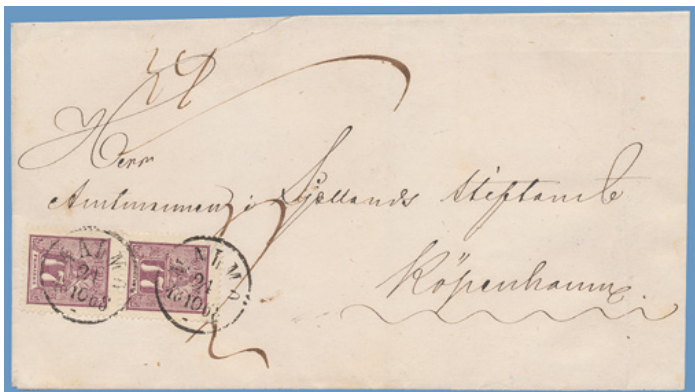 Herr
Amtmannen i Sjællands Stiftamt
Köpenhamn.
17
17
MALMÖ
24
10 68
MALMÖ
24
10